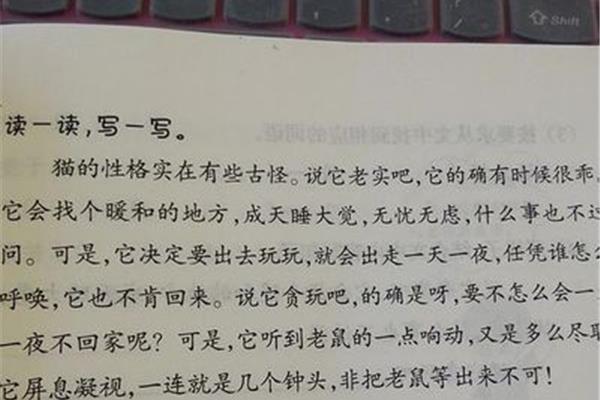 Shift
读一读,写一写。
猫的性格实在有些古怪。说它老实吧,它的确有时候很乖。
它会找个暖和的地方,成天睡大觉,无忧无虑,什么事也不过
问。可是,它决定要出去玩玩,就会出走一天一夜,任凭谁怎么
呼唤,它也不肯回来。说它贪玩吧,的确是呀,要不怎么会一
一夜不回家呢?可是,它听到老鼠的一点响动,又是多么尽职
它屏息凝视,一连就是几个钟头,非把老鼠等出来不可!